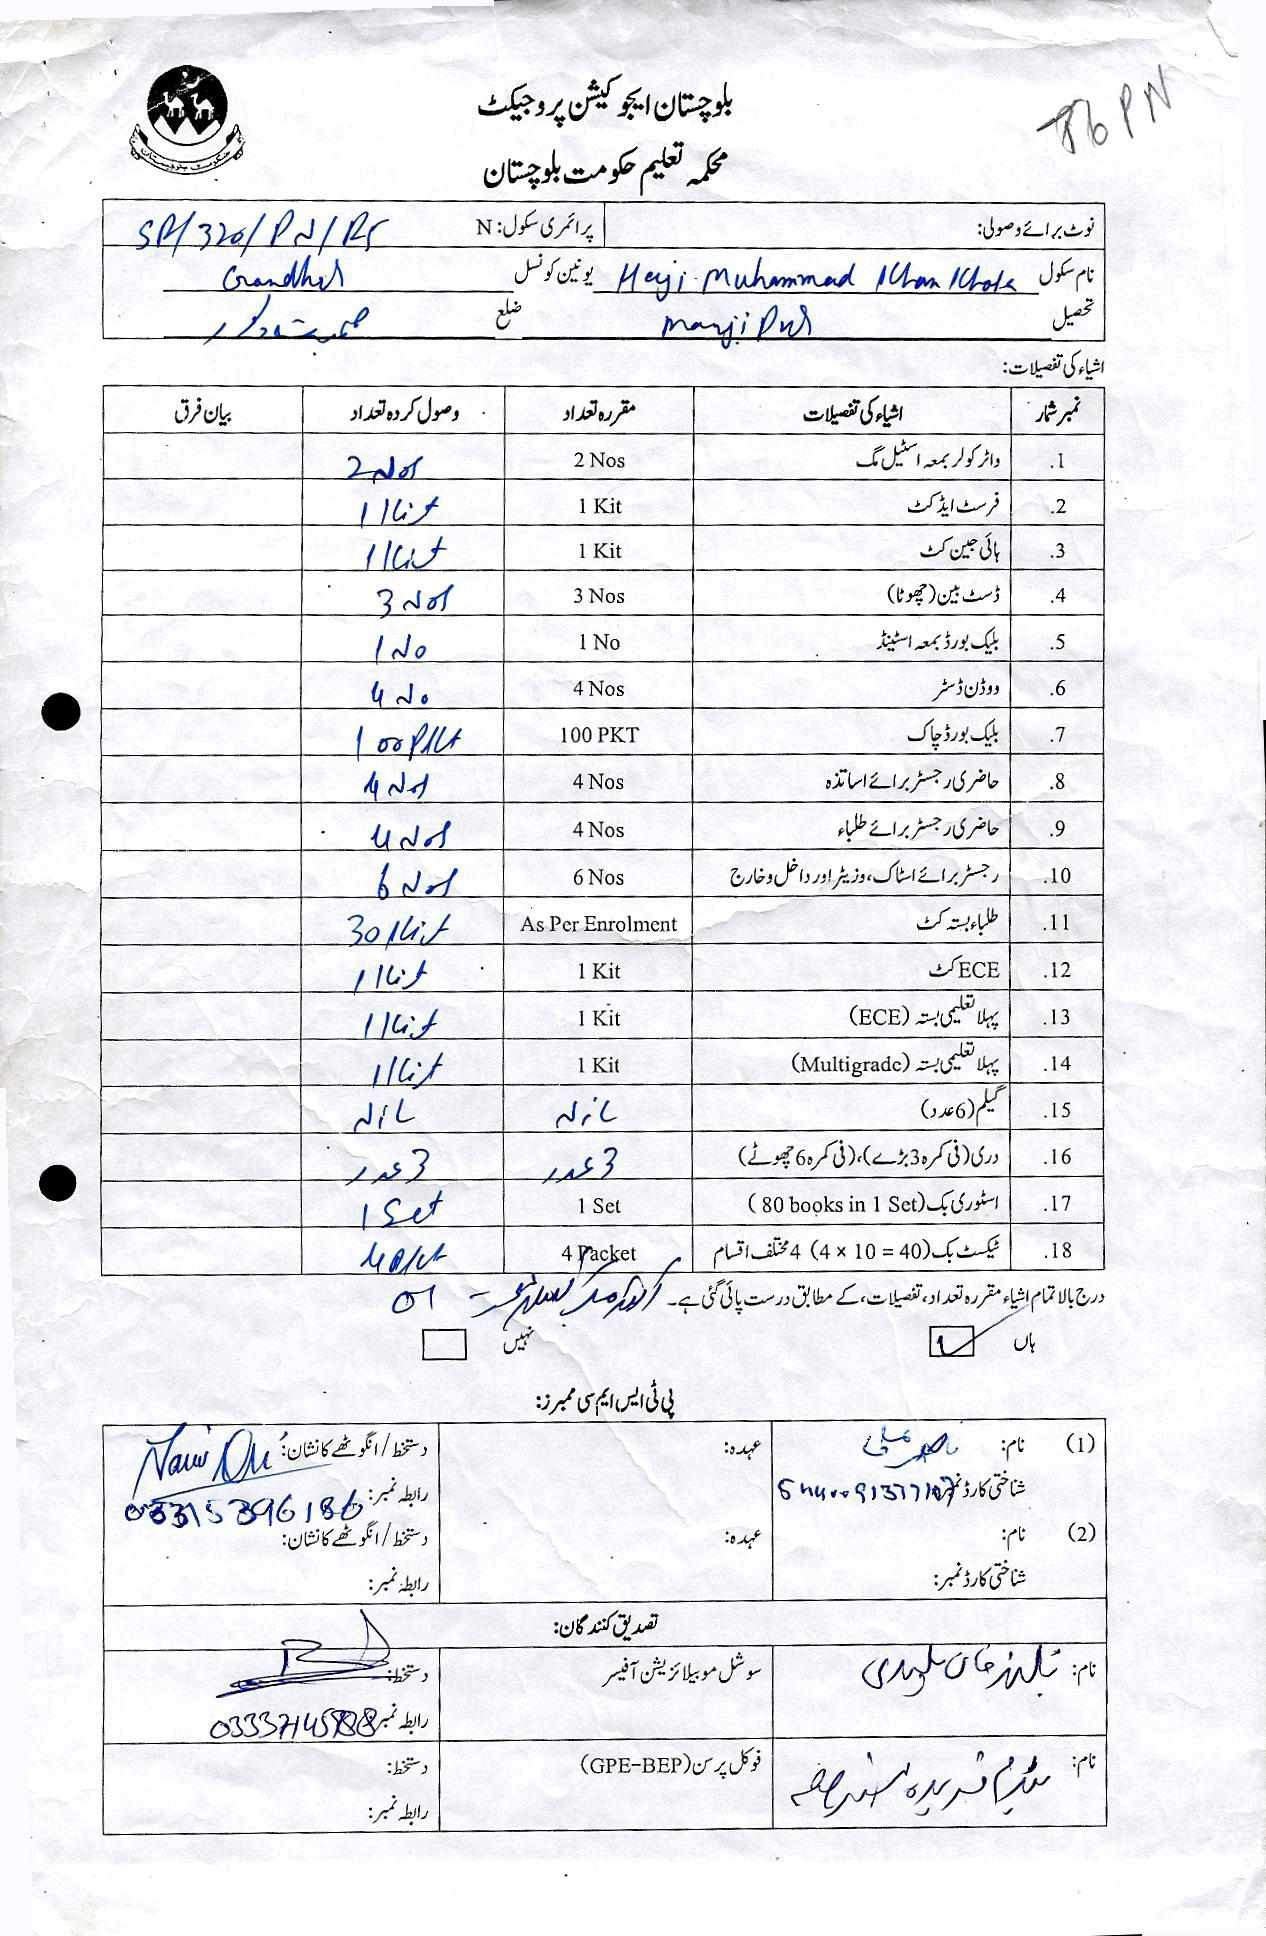 بلوچستان ایجوکیشن پروجیکٹ
86 PN
محکمہ تعلیم حکومت بلوچستان
حکومت بلوچستان
نوٹ برائے وصولی: پرائمری سکول: N SR/320/PN/RS
نام سکول Haji Muhammad Khan Khosa یونین کونسل Grandhel
تحصیل Manji Puh ضلع
اشیاء کی تفصیلات:
نمبر شمار اشیاء کی تفصیلات مقررہ تعداد وصول کردہ تعداد بیان فرق
1. واٹر کولر بمعہ اسٹیل مگ 2 Nos 2 Nos
2. فرسٹ ایڈ کٹ 1 Kit 1 Kit
3. ہائی جین کٹ 1 Kit 1 Kit
4. ڈسٹ بین (چھوٹا) 3 Nos 3 Nos
5. بلیک بورڈ بمعہ اسٹینڈ 1 No 1 No
6. ووڈن ڈسٹر 4 Nos 4 No
7. بلیک بورڈ چاک 100 PKT 100 PKt
8. حاضری رجسٹر برائے اساتذہ 4 Nos 4 Nos
9. حاضری رجسٹر برائے طلباء 4 Nos 4 Nos
10. رجسٹر برائے اسٹاک، وزیٹر اور داخل و خارج 6 Nos 6 Nos
11. طلباء بستہ کٹ As Per Enrolment 30 Kit
12. ECE کٹ 1 Kit 1 Kit
13. پہلا تعلیمی بستہ (ECE) 1 Kit 1 Kit
14. پہلا تعلیمی بستہ (Multigrade) 1 Kit 1 Kit
15. گیلم (6 عدد) NiL NiL
16. دری (فی کمرہ 3 بڑے)، (فی کمرہ 6 چھوٹے) 3 عدد 3 عدد
17. اسٹوری بک (80 books in 1 Set) 1 Set 1 Set
18. ٹیکسٹ بک (4 × 10 = 40) 4 مختلف اقسام 4 Packet 4 PKt
درج بالا تمام اشیاء مقررہ تعداد، تفصیلات، کے مطابق درست پائی گئی ہے۔
ہاں نہیں
پی ٹی ایس ایم سی ممبرز:
(1) نام: ناصر علی عہدہ: دستخط / انگوٹھے کا نشان:
شناختی کارڈ نمبر: رابطہ نمبر: 03315396186
(2) نام: عہدہ: دستخط / انگوٹھے کا نشان:
شناختی کارڈ نمبر: رابطہ نمبر:
تصدیق کنندگان:
نام: سوشل موبیلائزیشن آفیسر دستخط:
رابطہ نمبر:
نام: میڈم فریدہ فوکل پرسن (GPE-BEP) دستخط:
رابطہ نمبر: